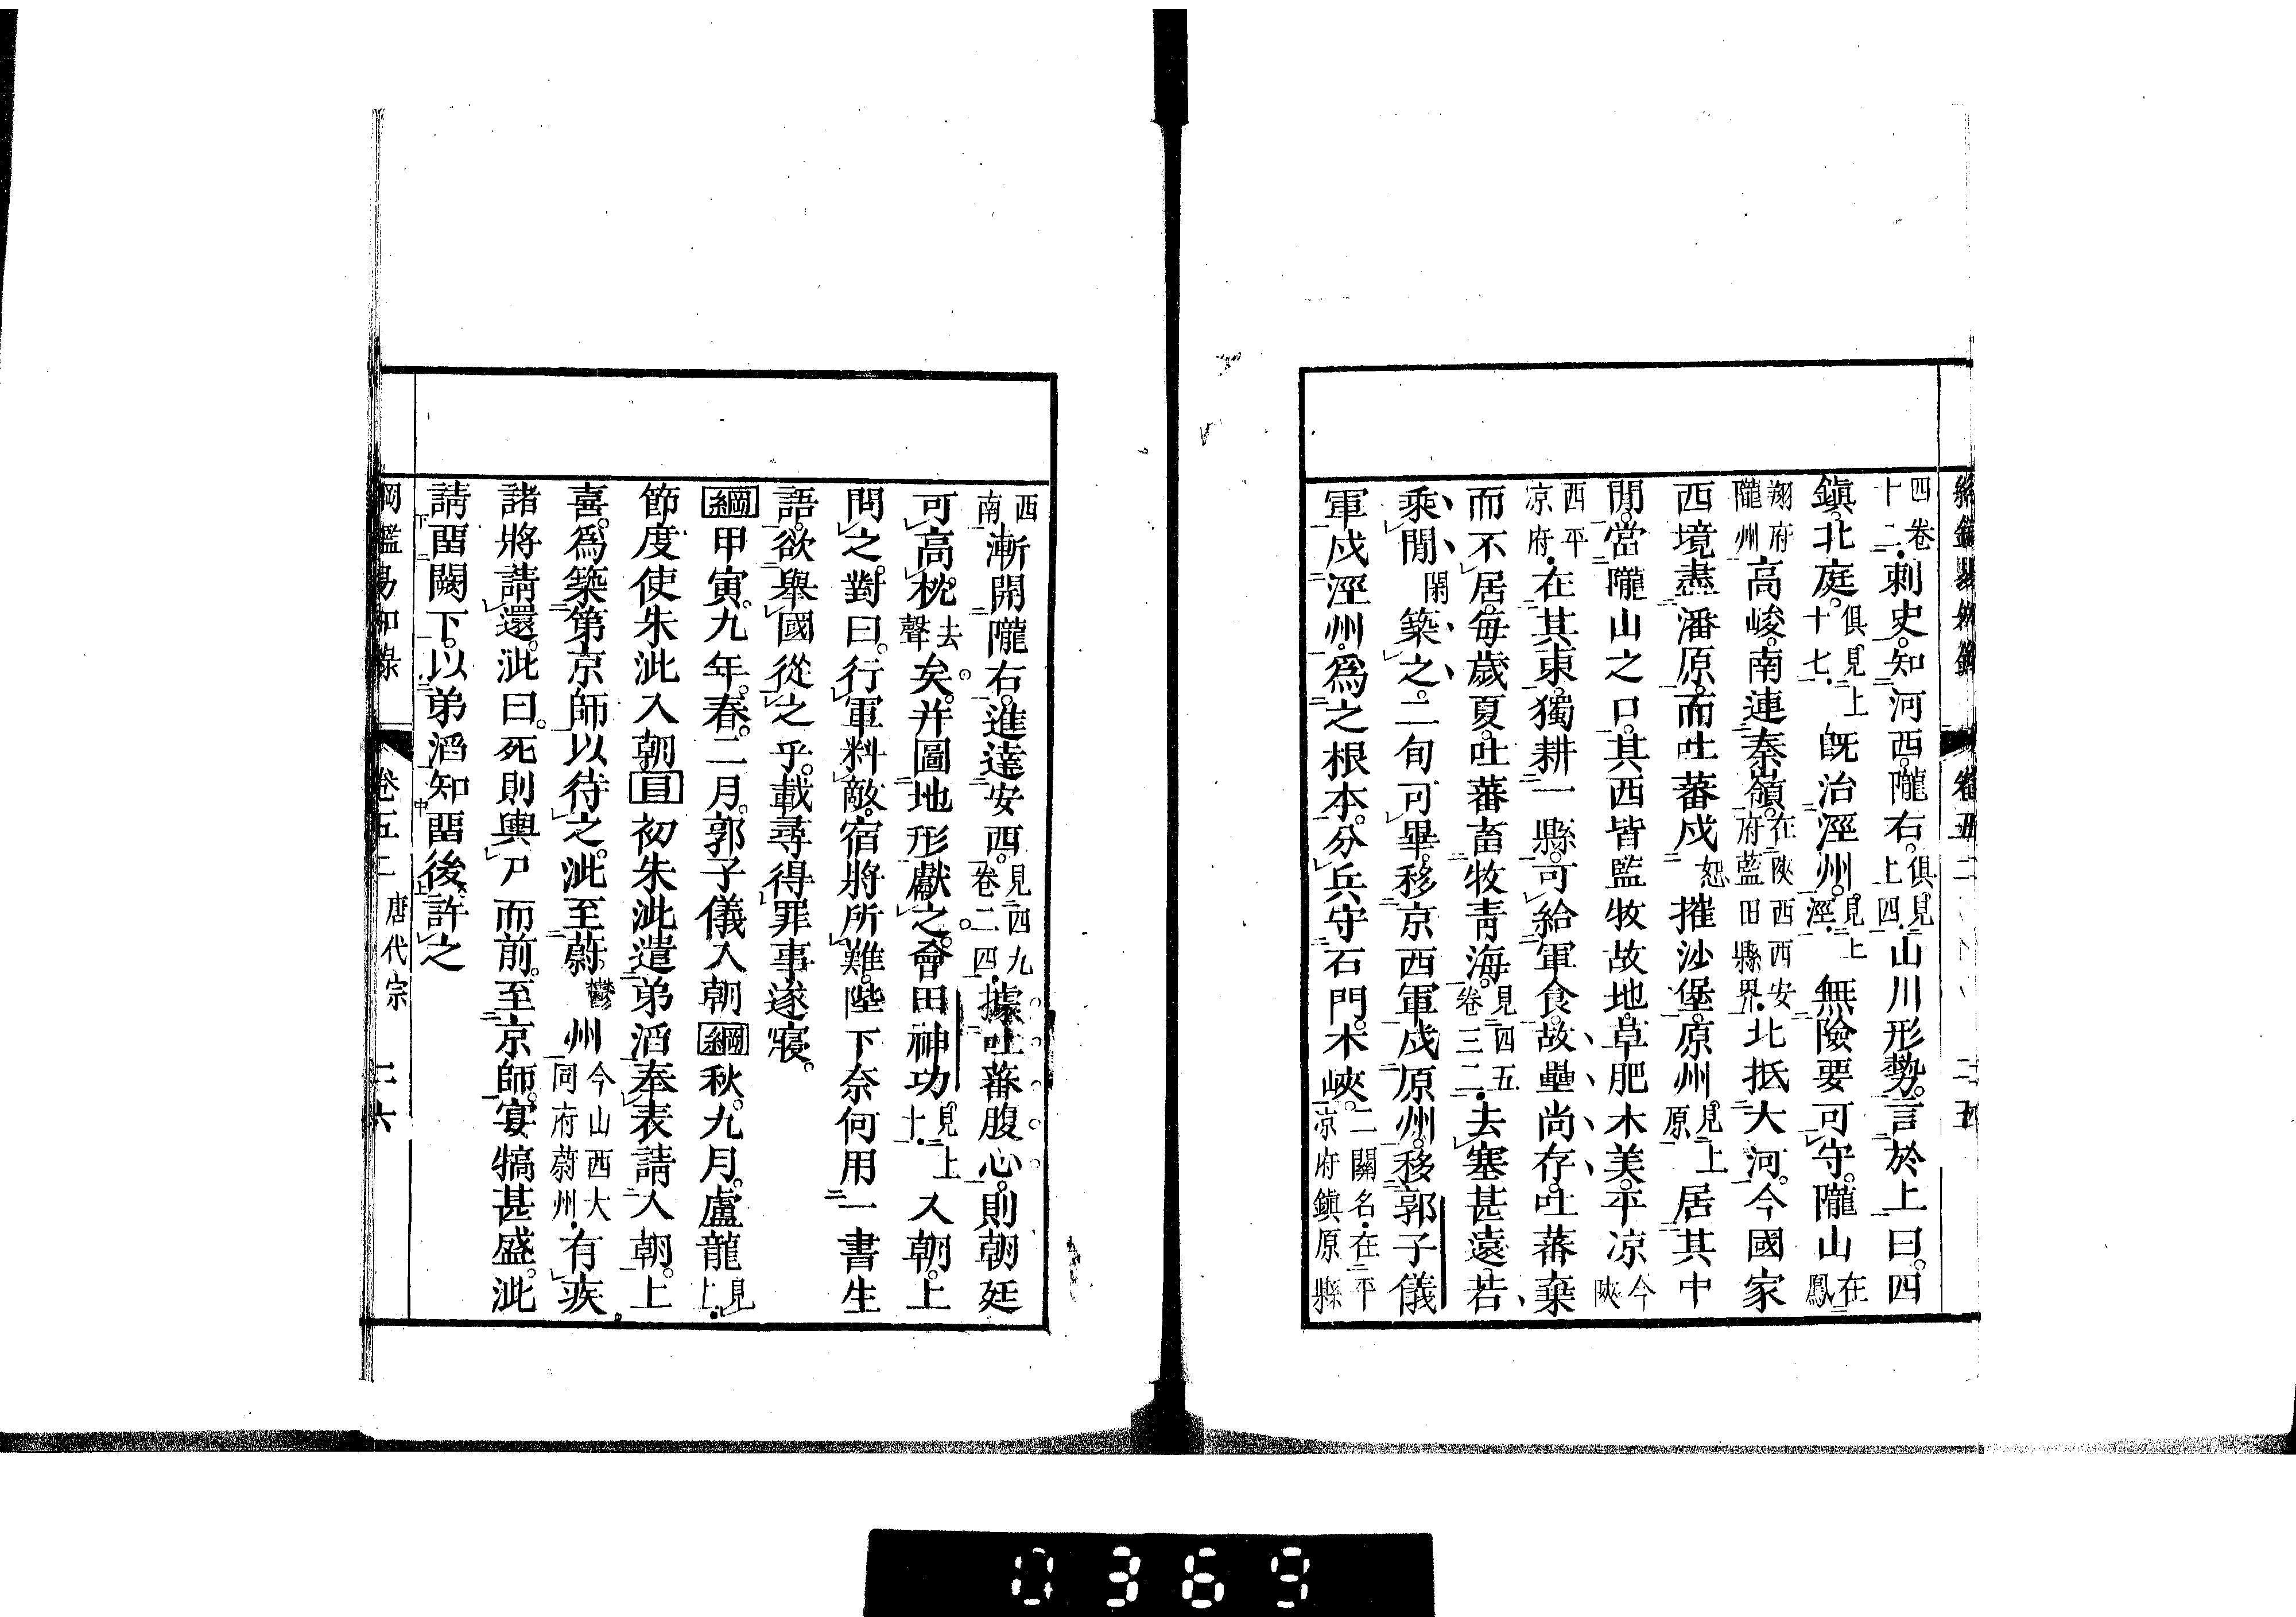 綱鑑易知錄 卷五二 二五
四卷十二刺史。知河西。隴右。俱見上四山川形勢。言於上曰。四
鎮。北庭。俱見上十七既治涇州。涇見上無險要可守。隴山在鳳
翔府隴州高峻。南連秦嶺。在陝西西安府藍田縣界北抵大河。今國家
西境盡潘原。而吐蕃戍恕摧沙堡。原州。見上原居其中
間。當隴山之口。其西皆監牧故地。草肥木美。平凉今陝
西平凉府在其東。獨耕一縣。可給軍食。故壘尚存。吐蕃棄
而不居。每歲夏。吐蕃畜牧青海。見四五卷三二去塞甚遠。若
乘閒閑築之。二旬可畢。移京西軍戍原州。移郭子儀
軍戍涇州。爲之根本。分兵守石門。木峽。二關名在平凉府鎮原縣
西南漸開隴右。進達安西。見四九卷二四據吐蕃腹心。則朝廷
可高枕去聲矣。并圖地形獻之。會田神功見上十入朝。上
問之。對曰。行軍料敵。宿將所難。陛下奈何用一書生
語。欲舉國從之乎。載尋得罪事遂寢。
綱甲寅。九年。春。二月。郭子儀入朝綱秋。九月。盧龍見上
節度使朱泚入朝目初朱泚遣弟滔奉表請入朝。上
喜。爲築第京師以待之。泚至蔚。鬱州今山西大同府蔚州有疾
諸將請還。泚曰。死則輿尸而前。至京師。宴犒甚盛。泚
請畱闕下。以弟滔知畱後。許之
綱鑑易知錄 卷五二 唐代宗 二六
0369